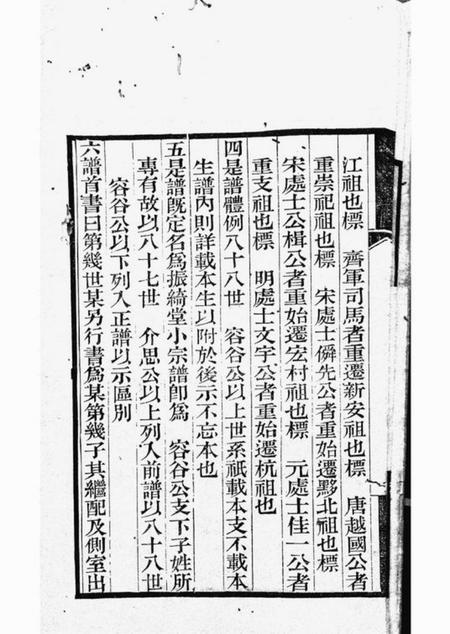 江祖也標　齊軍司馬者重遷新安祖也標　唐越國公者
重崇祀祖也標　宋處士僢先公者重始遷黟北祖也標
宋處士公楫公者重始遷宏村祖也標　元處士佳一公者
重支祖也標　明處士文宇公者重始遷杭祖也
四是譜體例八十八世　容谷公以上世系祇載本支不載本
生譜內則詳載本生以附於後示不忘本也
五是譜旣定名爲振綺堂小宗譜卽爲　容谷公支下子姓所
專有故以八十七世　介思公以上列入前譜以八十八世
容谷公以下列入正譜以示區別
六譜首書曰第幾世某另行書爲某第幾子其繼配及側室出